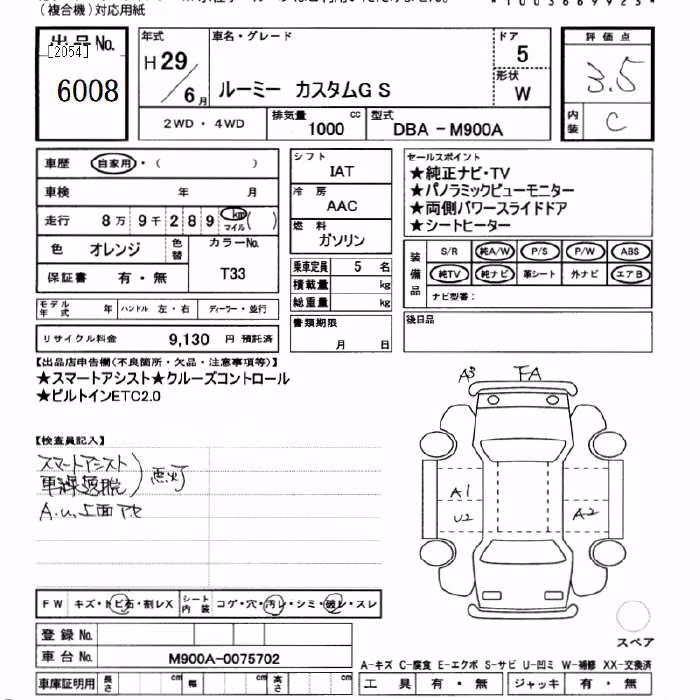 (複合機)対応用紙
*1003669923*
出品No. [2054] 6008
年式 H29/6月
車名・グレード ルーミー カスタムGS
ドア 5
形状 W
評価点 3.5
内装 C
2WD・4WD
排気量 1000 cc
型式 DBA-M900A
車歴 自家用・( )
車検 年 月
走行 8万9千289 km マイル ( )
色 オレンジ 色替 カラーNo. T33
保証書 有・無
モデル年式 年 ハンドル 左・右 ディーラー・並行
リサイクル料金 9,130 円 預託済
シフト IAT
冷房 AAC
燃料 ガソリン
乗車定員 5 名
積載量 kg
総重量 kg
書類期限 月 日
セールスポイント
★純正ナビ・TV
★パノラミックビューモニター
★両側パワースライドドア
★シートヒーター
装備品 S/R 純A/W P/S P/W ABS
純TV 純ナビ 革シート 外ナビ エアB
ナビ型番:
後日品
【出品店申告欄(不良箇所・欠品・注意事項等)】
★スマートアシスト★クルーズコントロール
★ビルトインETC2.0
【検査員記入】
スマートアシスト
車線逸脱
A3 FA
A1
U2 A2
FW キズ・トビ石・割レX シート内装 コゲ・穴・汚レ・シミ・破レ・スレ
スペア
登録No.
車台No. M900A-0075702
A-キズ C-腐食 E-エクボ S-サビ U-凹ミ W-補修 XX-交換済
車庫証明用 長さ cm 幅 cm 高さ cm
工具 有・無 ジャッキ 有・無